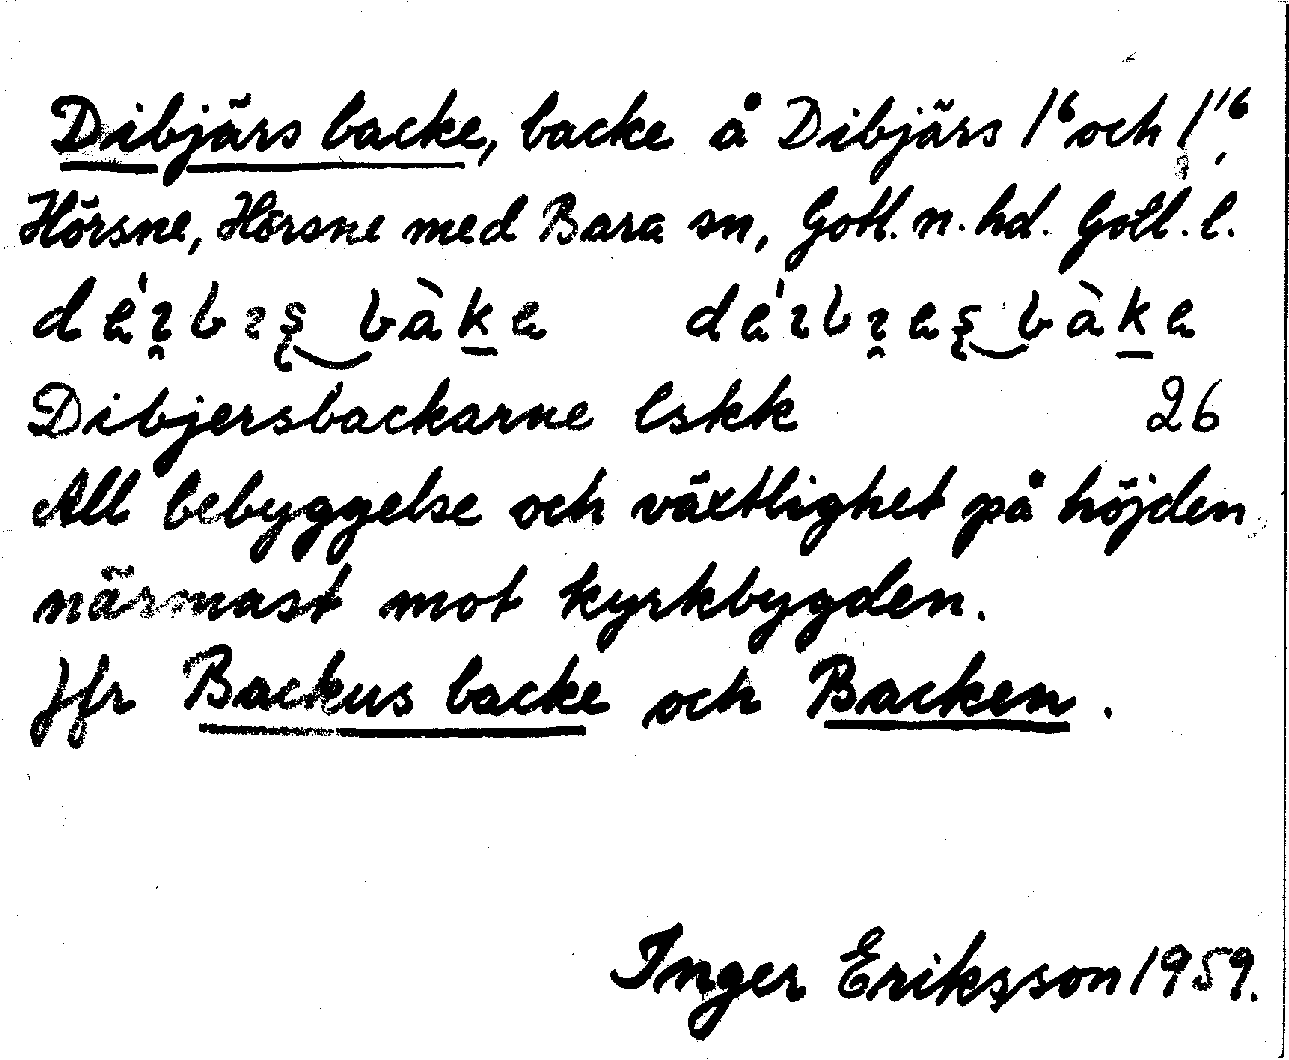 Dibjärs backe, backe å Dibjärs 1⁶ och 1¹⁶,
Hörsne, Hörsne med Bara sn, Gotl. n. hd. Gotl. l.
Dibjersbackarne lskk 26
All bebyggelse och växtlighet på höjden
närmast mot kyrkbygden.
Jfr Backus backe och Backen.
Inger Eriksson 1959.